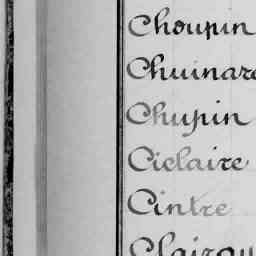 Choupin
Chuinard
Chupin
Ciclaire
Cintre